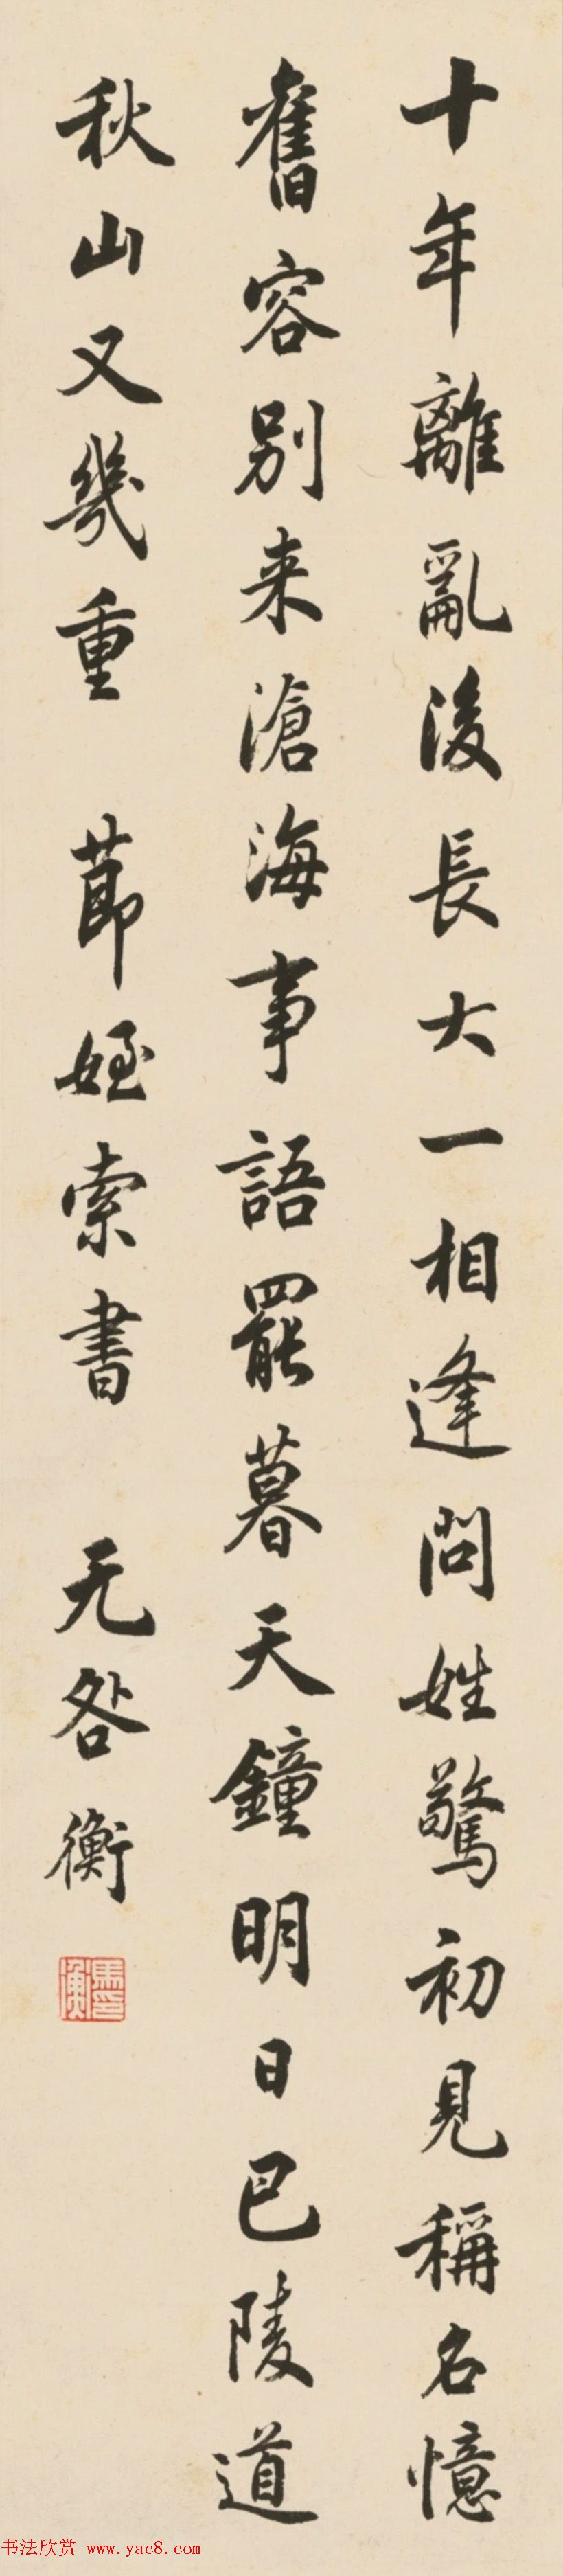 十年離亂後長大一相逢問姓驚初見稱名憶
舊容別来滄海事語罷暮天鐘明日巴陵道
秋山又幾重 莭姪索書 无咎衡
馬衡印
书法欣赏 www.yac8.com